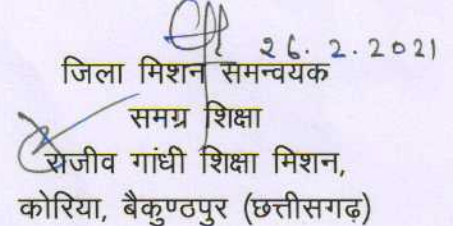 26.2.2021
जिला मिशन समन्वयक
समग्र शिक्षा
राजीव गांधी शिक्षा मिशन,
कोरिया, बैकुण्ठपुर (छत्तीसगढ़)